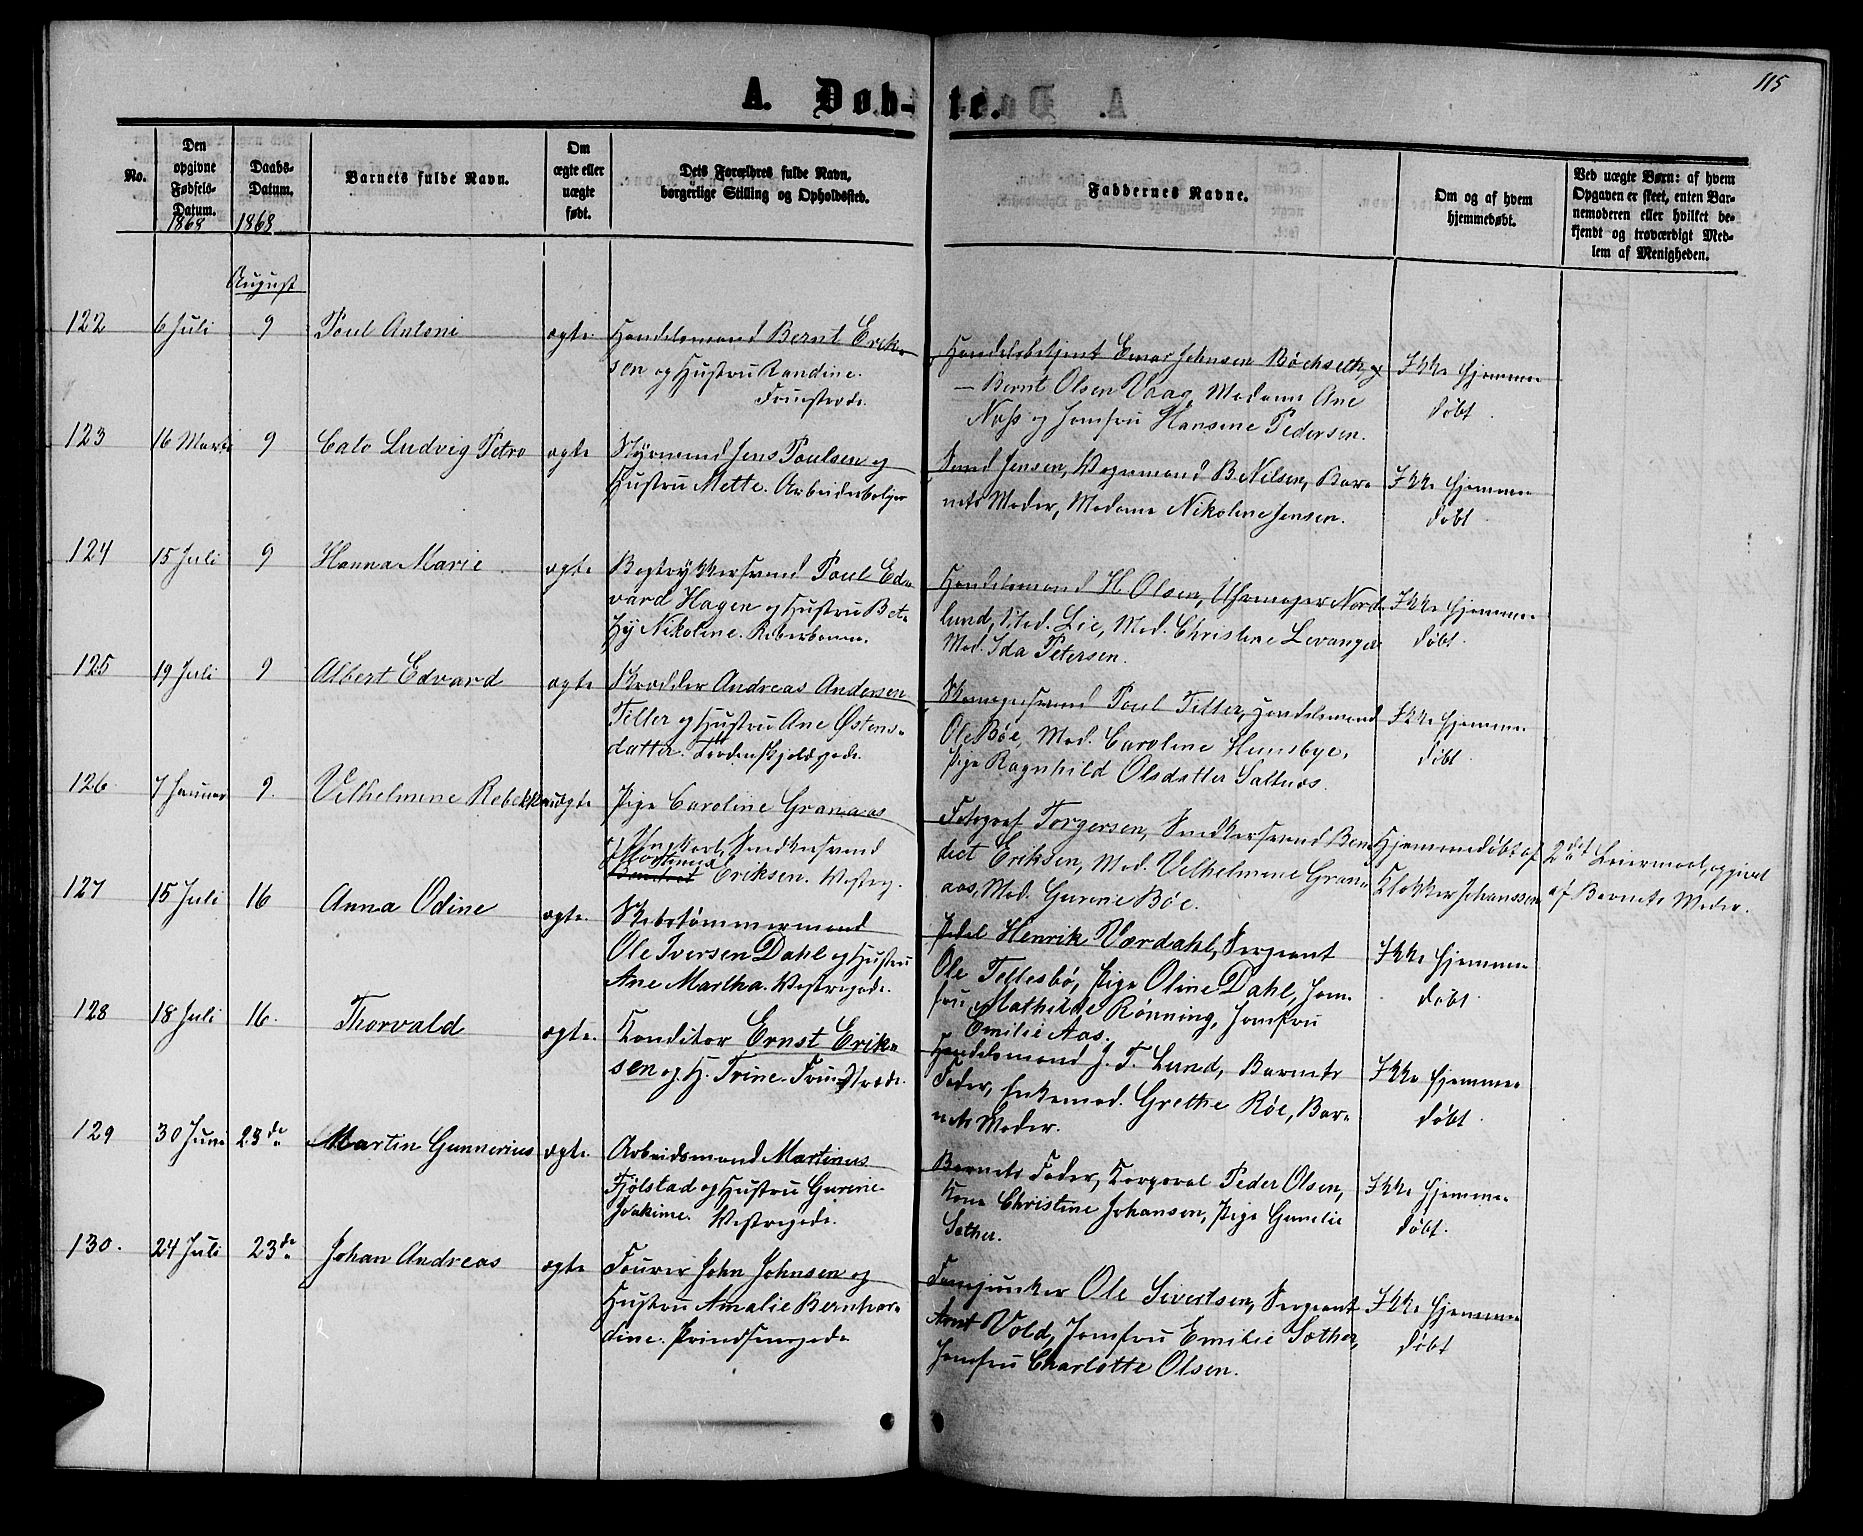 115
A. Døb-te.
No.
Den
opgivne
Fødsels-
Datum.
1868
Daabs-
Datum.
1868
Barnets fulde Navn.
Om
ægte eller
uægte
født.
Dets Forældres fulde Navn,
borgerlige Stilling og Opholdssted.
Faddernes Navne.
Om og af hvem
hjemmedøbt.
Ved uægte Børn: af hvem
Opgaven er skeet, enten Bar-
nemoderen eller hvilket be-
kjendt og troværdigt Med-
lem af Menigheden.
August
122 6 Juli 9 Poul Antoni ægte Handelsmand Bernt Erik-
sen og Hustru Randine.
Handelsbetjent Einar Johnsen Bøchseth, og
— Bernt Olsen Vaag, Madam Ane
Næss og Jomfru Hansene Pedersen.
Ikke hjemme-
døbt.
123 16 Marts 9 Calo Ludvig Petro ægte Styrmand Jens Poulsen og
Hustru Mette. Arbeiderbolger
Svend Jensen, Vognmand B. Nilsen, Bar-
nets Moder, Madame Nikoline Jensen.
Ikke hjemme-
døbt
124 15 Juli 9 Hanna Marie ægte Bogtrykkersvend Poul Ed-
vard Hagen og Hustru Bet-
hy Nikoline.
Handelsmand H. Olsen, Uhrmager Nord-
lund, Mad. Lie, Mad. Christine Levanger
Mad. Ida Petersen.
Ikke hjemme-
døbt.
125 19 Juli 9 Albert Edvard ægte Skrædder Andreas Andersen
Teller og Hustru Ane Østens-
datter. Tordenskjoldsgade.
Skomagersvend Poul Tiller, Handelsmand
Ole Bøe, Mad. Caroline Hunsbye,
Pige Ragnhild Olsdatter Saltnæs.
Ikke hjemme-
døbt.
126 7 Januar 9. Vilhelmine Rebekka uægte Pige Caroline Granaas
Ungkarl, Snedkersvend
Eriksen. Vestreg.
Fotograf Torgersen, Snedkersvend Bene-
dict Eriksen, Mad. Vilhelmine Gran-
aas, Mad. Gurine Bøe.
Hjemmedøbt af
Klokker Johanssen
2det Leiermaal, opgivet
af Barnets Moder.
127 15 Juli 16 Anna Odine ægte. Skibstømmermand
Ole Iversen Dahl og Hustru
Ane Martha. Vestregade.
Pedel Henrik Værdahl, Sergeant
Ole Tellesbø, Pige Oline Dahl, Jom-
fru Mathilde Rønning, Jomfru
Emilie Aas.
Ikke hjemme-
døbt
128 18 Juli 16. Thorvald ægte. Konditor Ernst Erik-
sen og H. Trine.
Handelsmand J. T. Lund, Barnets
Fader, Enkemad. Grethe Røe, Bar-
nets Moder.
Ikke hjemme-
døbt.
129 30 Juni 23de Martin Gunnerius ægte. Arbeidsmand Martinus
Fjølstad og Hustru Gurine
Joakime. Vestregade.
Barnets Fader, Korporal Peder Olsen,
Kone Christine Johansen, Pige Gunelie
Sæther.
Ikke hjemme-
døbt.
130. 24 Juli 23de Johan Andreas ægte Fourer John Johnsen og
Hustru Amalie Bernhar-
dine. Prindsensgade
Fanejunker Ole Sivertsen, Sergeant
Arnt Vold, Jomfru Emilie Sæther,
Jomfru Charlotte Olsen.
Ikke hjemme-
døbt